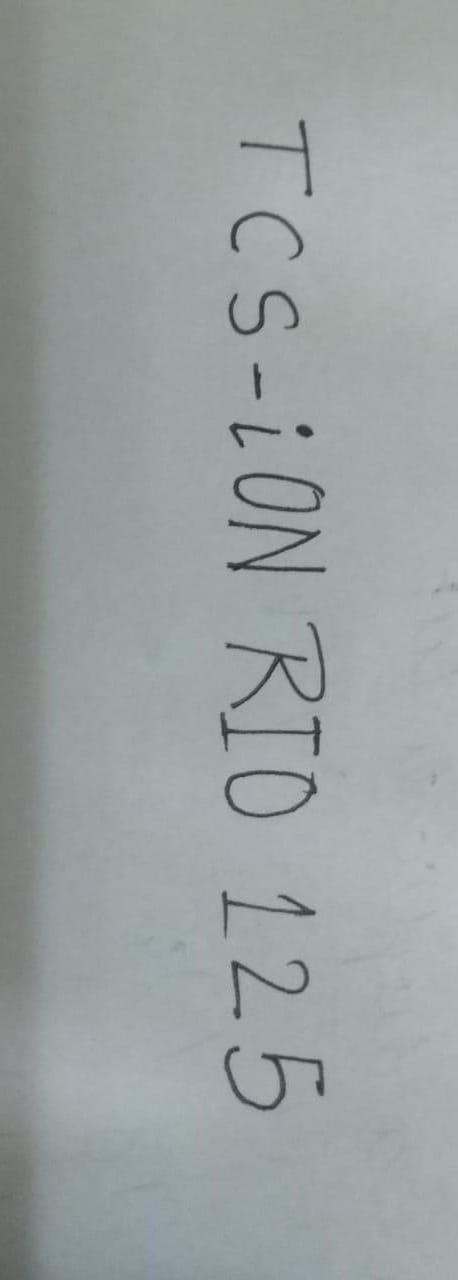 TCS-iON RIO 125